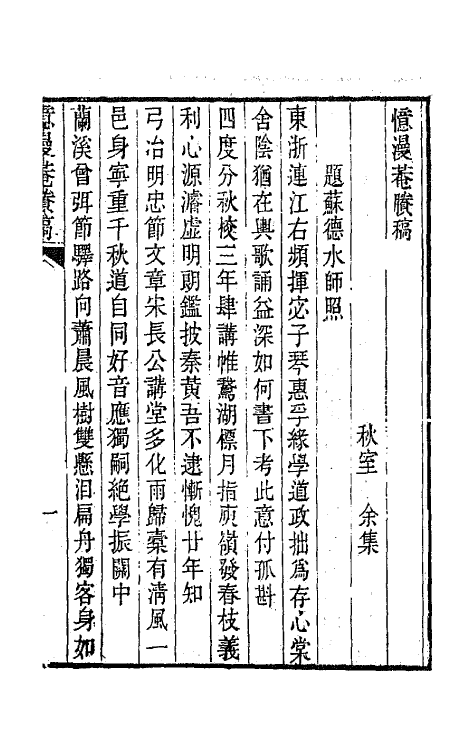 憶漫菴賸稿
秋室　余集
題蘇德水師照
東浙連江右頻揮宓子琴惠孚緣學道政拙為存心棠
舍陰猶在輿歌誦益深如何書下考此意付孤斟
四度分秋校三年肆講帷鵞湖標月指庾嶺發春枝義
利心源濬虛明朗鑑披秦黃吾不逮慚愧廿年知
弓冶明忠節文章宋長公講堂多化雨歸橐有清風一
邑身寧重千秋道自同好音應獨嗣絕學振關中
蘭溪曾弭節驛路向蕭晨風樹雙懸泪扁舟獨客身如
憶漫菴賸稿
一